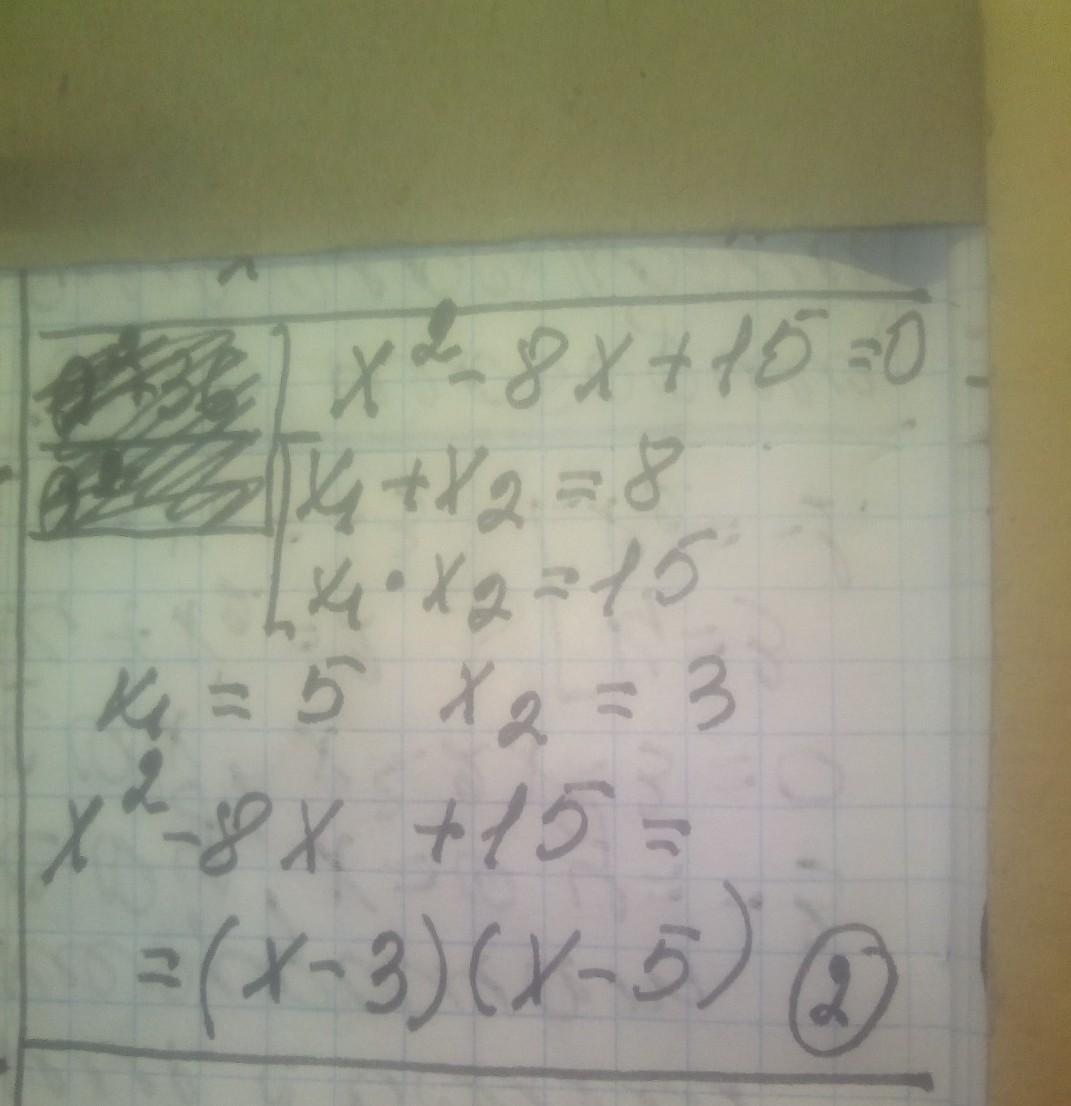 x² - 8x + 15 = 0
x₁ + x₂ = 8
x₁ · x₂ = 15
x₁ = 5 x₂ = 3
x² - 8x + 15 =
= (x - 3)(x - 5) 2